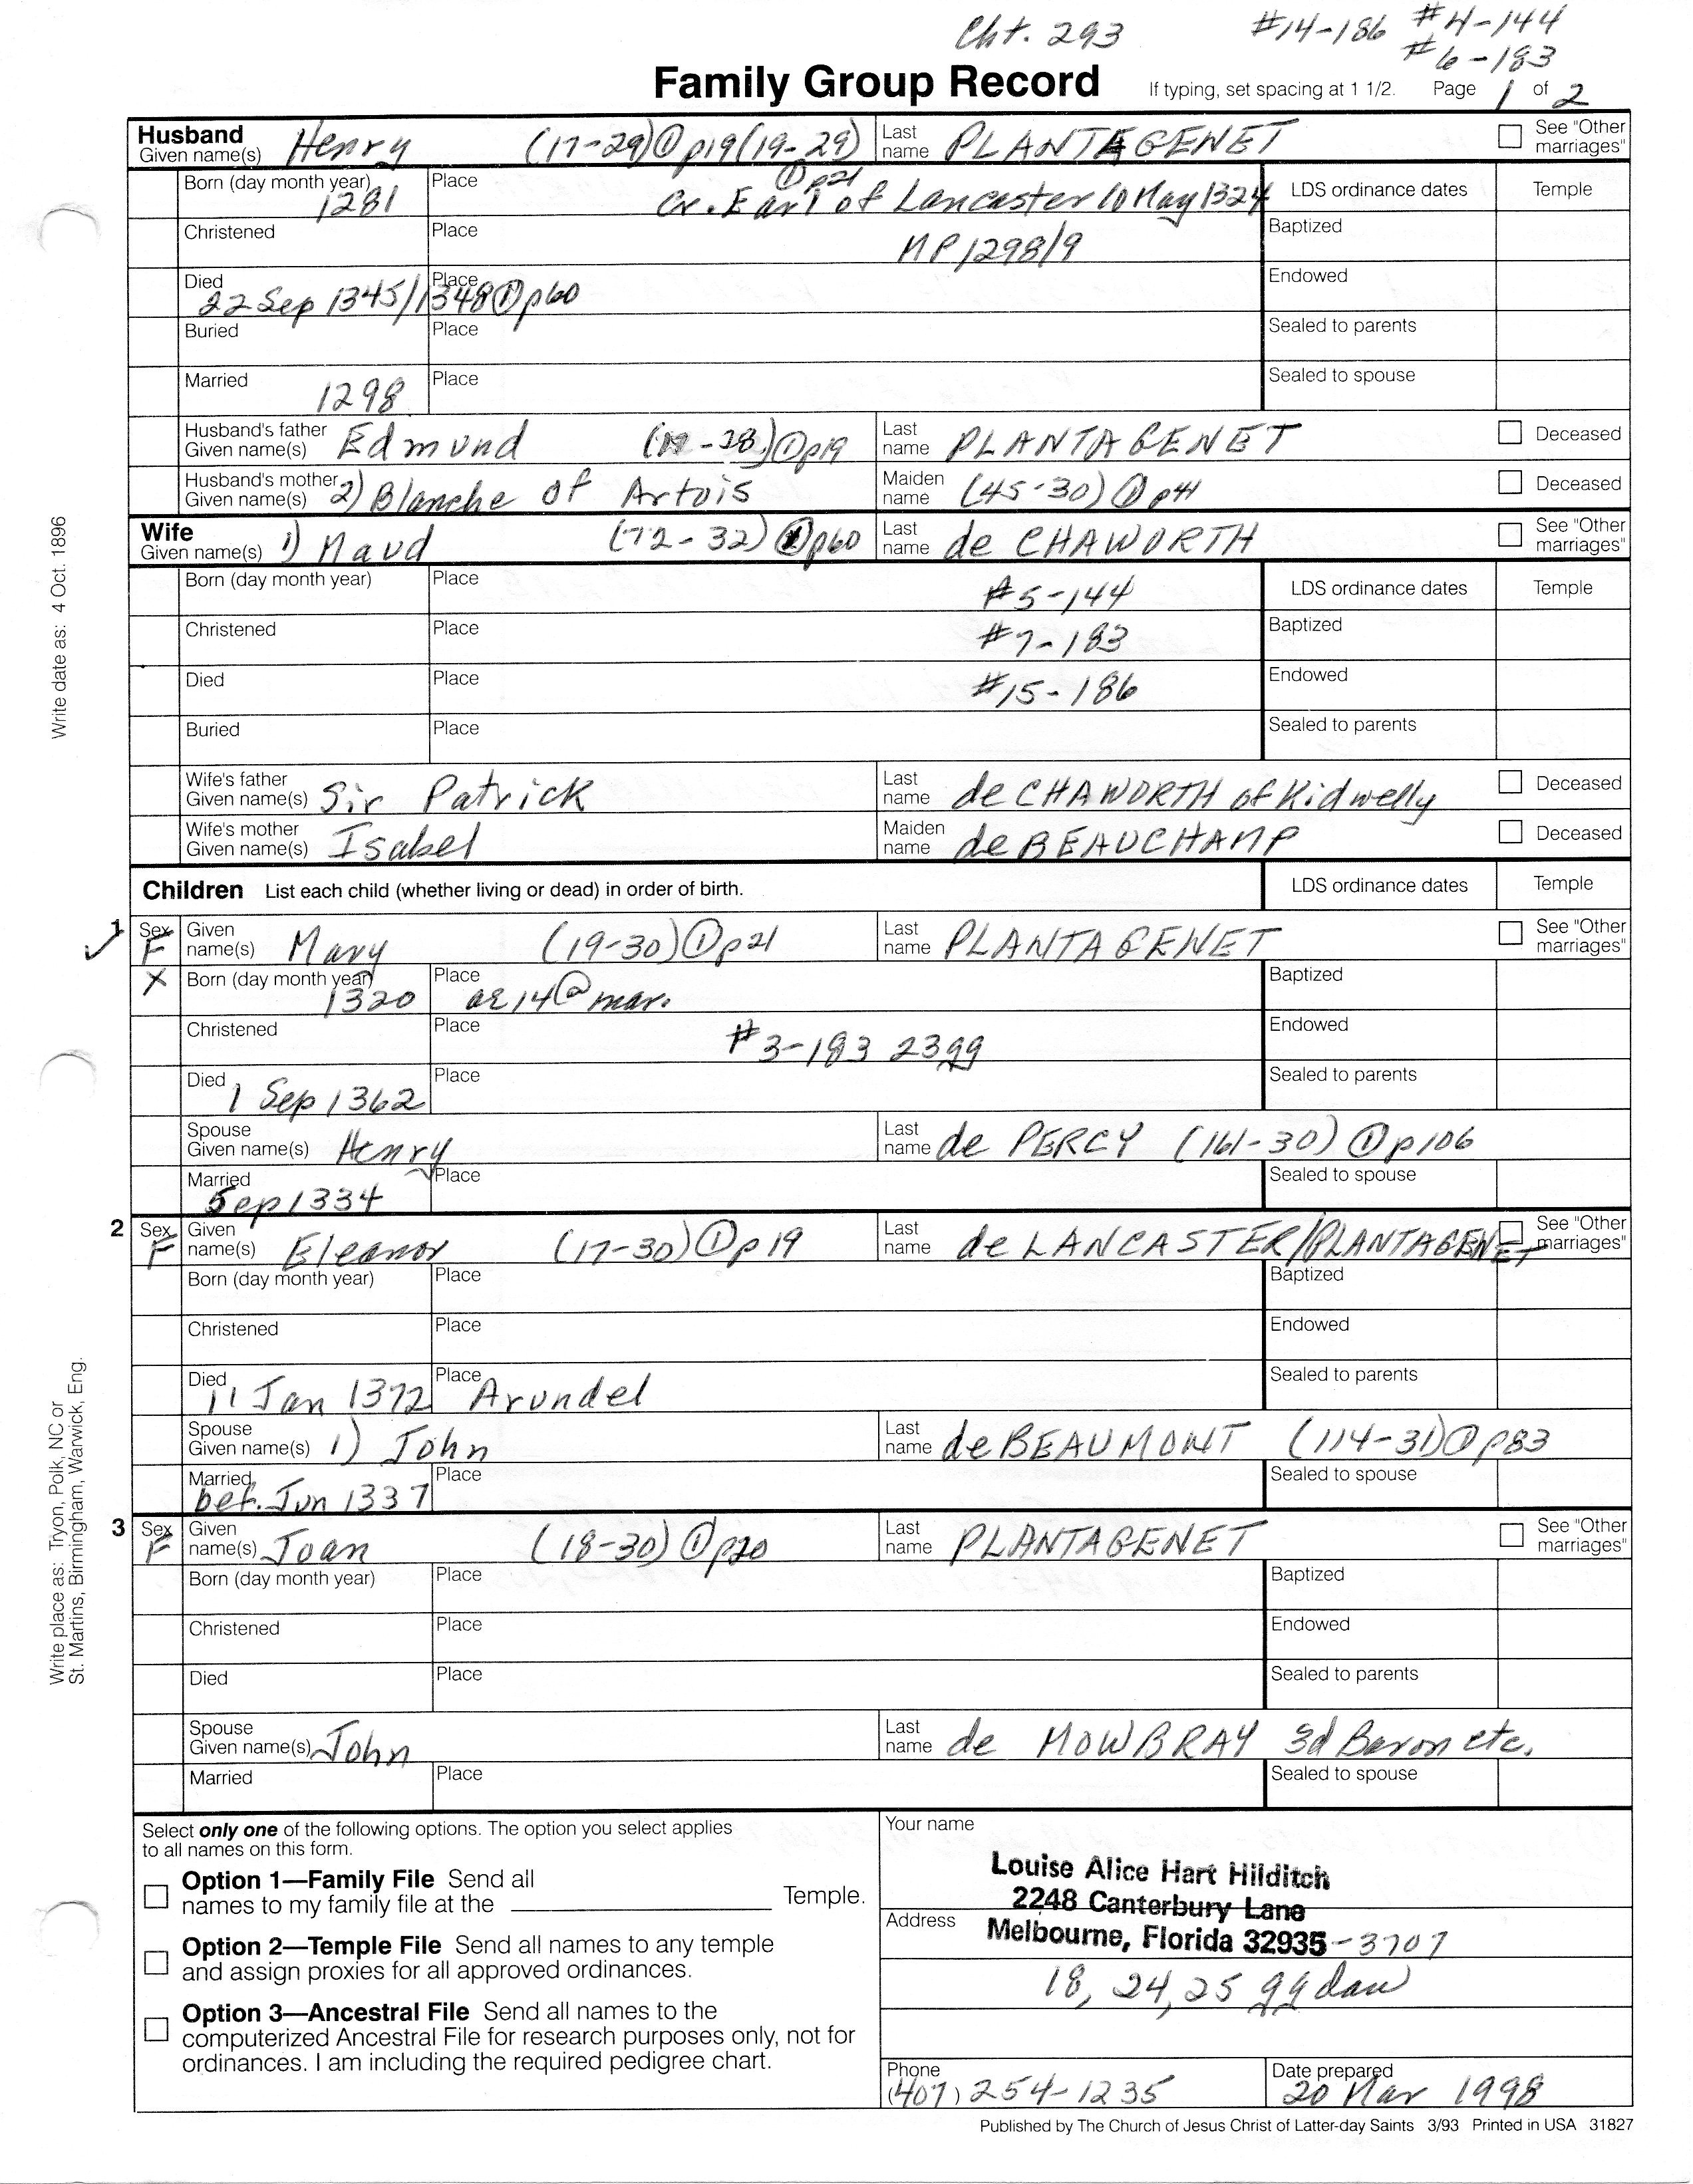 Cht. 293 #14-186 #4-144
#6-183
Family Group Record If typing, set spacing at 1 1/2. Page 1 of 2
Husband Given name(s) Henry (17-29)①p19(19-29)①p21 Last name PLANTAGENET See "Other marriages"
Born (day month year) 1281 Place Cr. Earl of Lancaster 10 May 1324 LDS ordinance dates Temple
Christened Place MP1298/9 Baptized
Died 22 Sep 1345/1348①p60 Place Endowed
Buried Place Sealed to parents
Married 1298 Place Sealed to spouse
Husband's father Given name(s) Edmund ①p19 Last name PLANTAGENET Deceased
Husband's mother Given name(s) 2) Blanche of Artois Maiden name (45-30)①p41 Deceased
Wife Given name(s) 1) Maud (72-32) ①p60 Last name de CHAWORTH See "Other marriages"
Born (day month year) Place #5-144 LDS ordinance dates Temple
Christened Place #7-183 Baptized
Died Place #15-186 Endowed
Buried Place Sealed to parents
Wife's father Given name(s) Sir Patrick Last name de CHAWORTH of Kidwelly Deceased
Wife's mother Given name(s) Isabel Maiden name de BEAUCHAMP Deceased
Children List each child (whether living or dead) in order of birth. LDS ordinance dates Temple
1 Sex F Given name(s) Mary (19-30)①p21 Last name PLANTAGENET See "Other marriages"
X Born (day month year) 1320 Place ae 14 @ mar. Baptized
Christened Place #3-183 23gg Endowed
Died 1 Sep 1362 Place Sealed to parents
Spouse Given name(s) Henry Last name de PERCY (161-30) ①p106
Married Sep 1334 Place Sealed to spouse
2 Sex F Given name(s) Eleanor (17-30)①p19 Last name de LANCASTER/PLANTAGENET See "Other marriages"
Born (day month year) Place Baptized
Christened Place Endowed
Died 11 Jan 1372 Place Arundel Sealed to parents
Spouse Given name(s) 1) John Last name de BEAUMONT (114-31)①p83
Married bef. Jun 1337 Place Sealed to spouse
3 Sex F Given name(s) Joan (18-30)①p20 Last name PLANTAGENET See "Other marriages"
Born (day month year) Place Baptized
Christened Place Endowed
Died Place Sealed to parents
Spouse Given name(s) John Last name de MOWBRAY 3d Baron etc.
Married Place Sealed to spouse
Select only one of the following options. The option you select applies
to all names on this form.
Option 1—Family File Send all
names to my family file at the Temple.
Option 2—Temple File Send all names to any temple
and assign proxies for all approved ordinances.
Option 3—Ancestral File Send all names to the
computerized Ancestral File for research purposes only, not for
ordinances. I am including the required pedigree chart.
Your name
Louise Alice Hart Hilditch
2248 Canterbury Lane
Address Melbourne, Florida 32935-3707
18, 24, 25 gg dau
Phone (407) 254-1235 Date prepared 20 Mar 1998
Published by The Church of Jesus Christ of Latter-day Saints 3/93 Printed in USA 31827
Write date as: 4 Oct. 1896
Write place as: Tryon, Polk, NC or
St. Martins, Birmingham, Warwick, Eng.